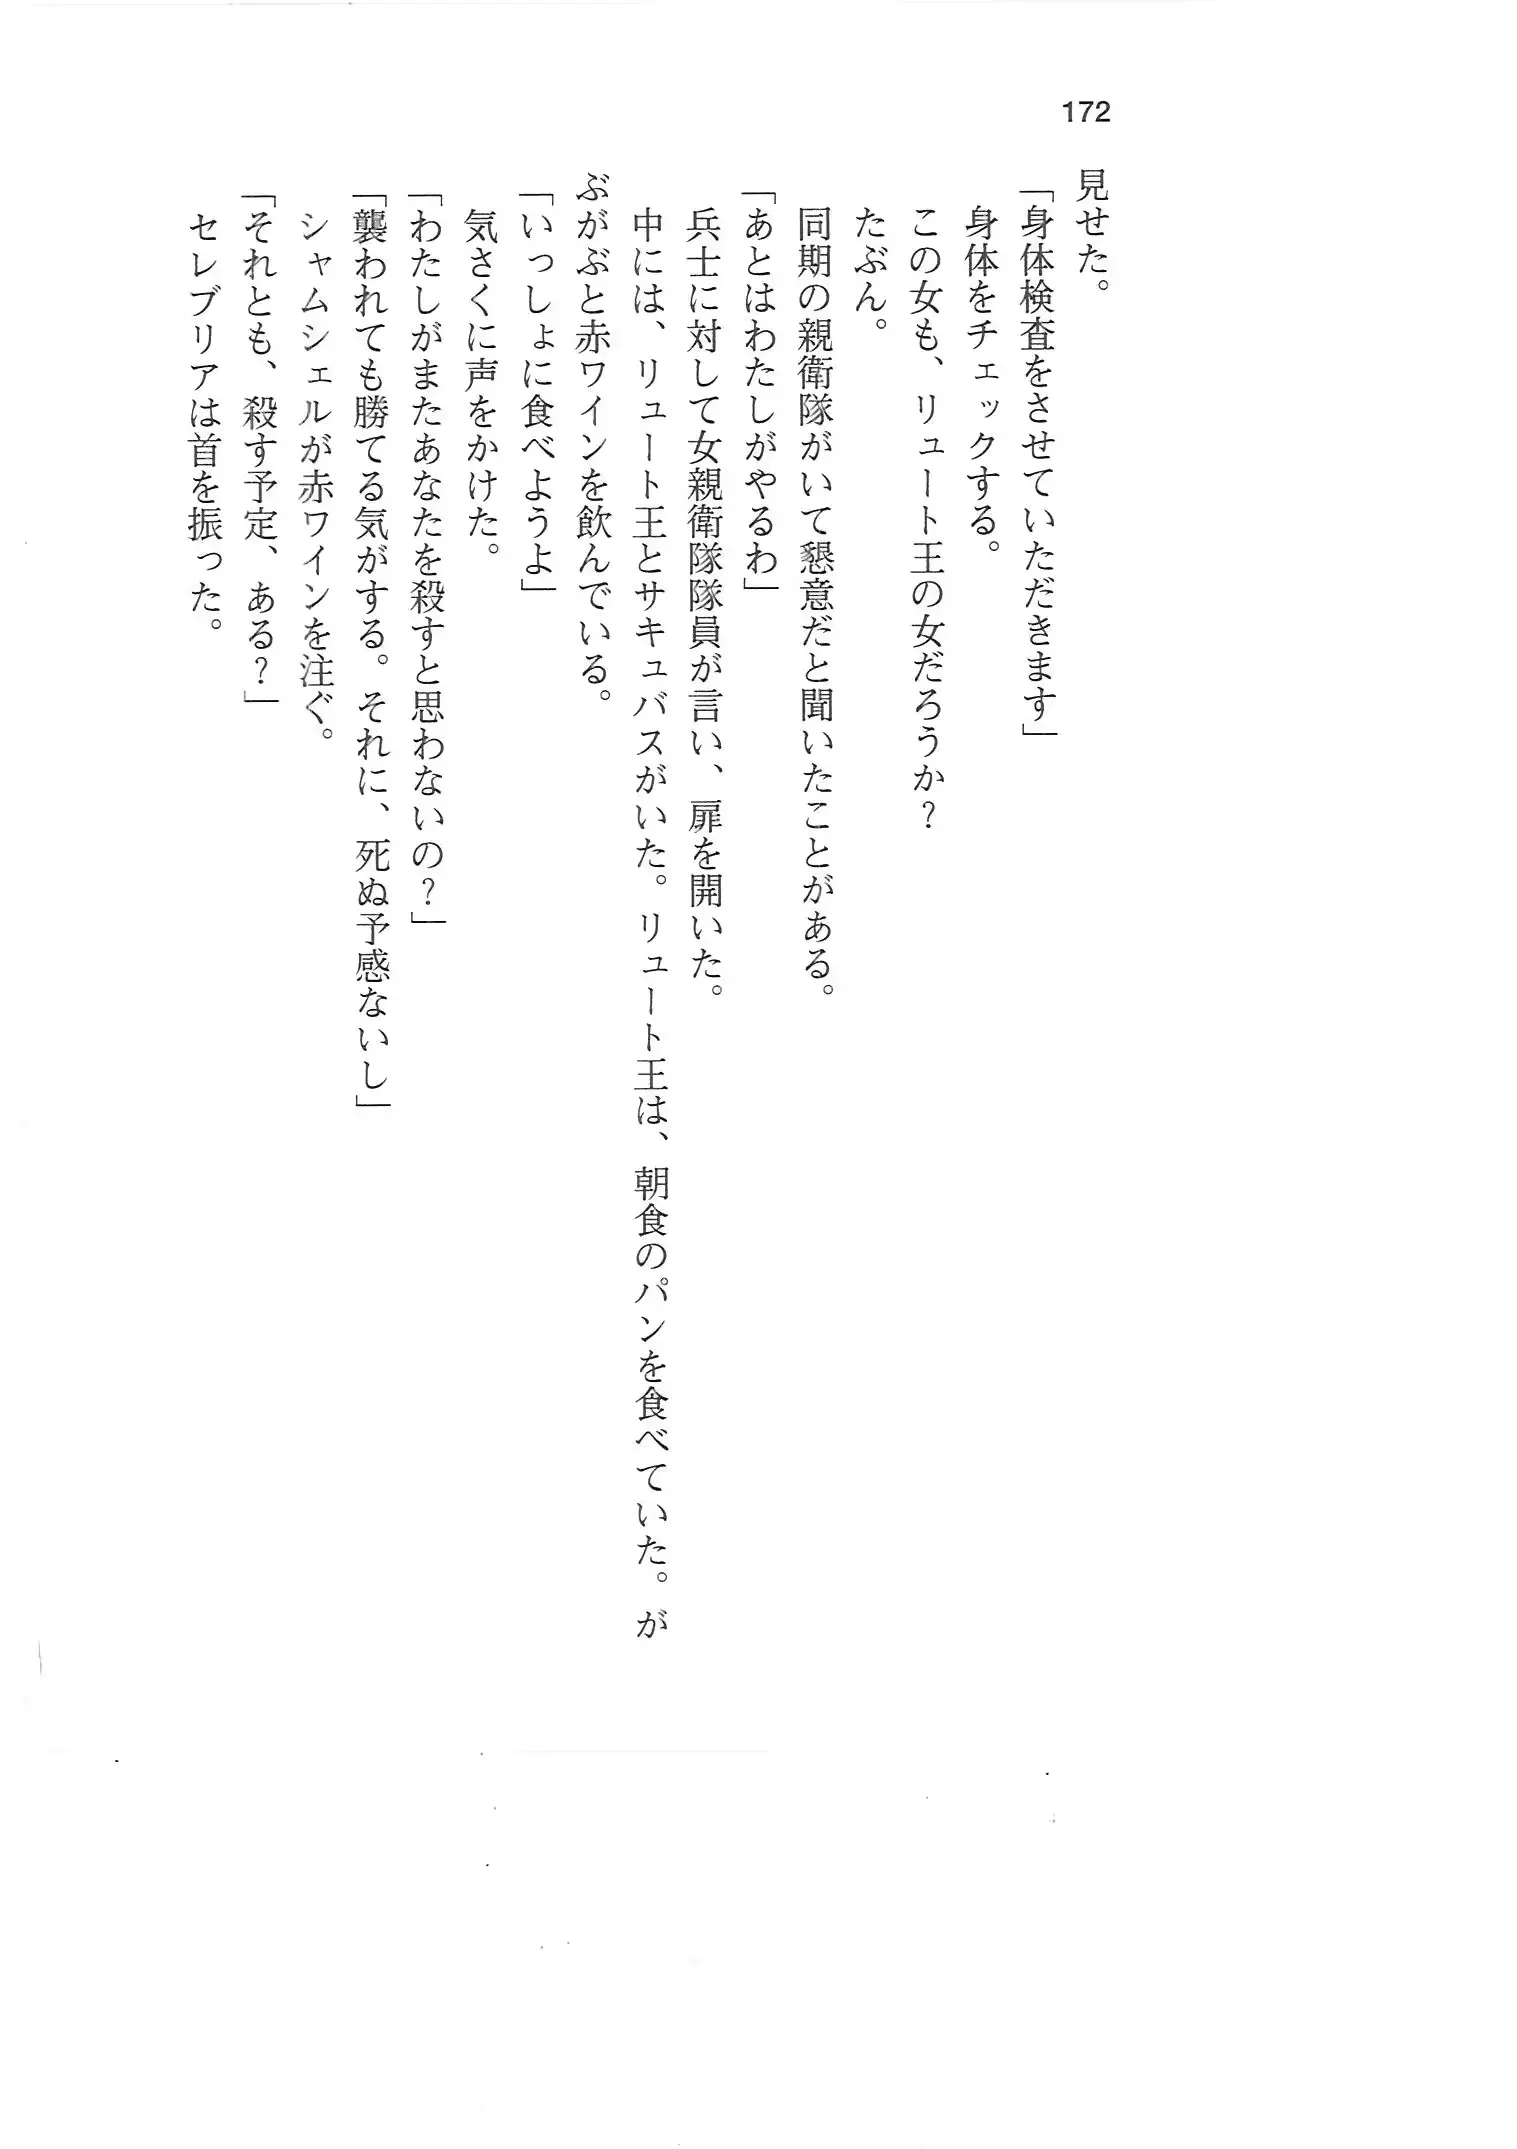 172
見せた。
「身体検査をさせていただきます」
身体をチェックする。
この女も、リュート王の女だろうか?
たぶん。
同期の親衛隊がいて懇意だと聞いたことがある。
「あとはわたしがやるわ」
兵士に対して女親衛隊隊員が言い、扉を開いた。
中には、リュート王とサキュバスがいた。リュート王は、朝食のパンを食べていた。が
ぶがぶと赤ワインを飲んでいる。
「いっしょに食べようよ」
気さくに声をかけた。
「わたしがまたあなたを殺すと思わないの?」
「襲われても勝てる気がする。それに、死ぬ予感ないし」
シャムシェルが赤ワインを注ぐ。
「それとも、殺す予定、ある?」
セレブリアは首を振った。